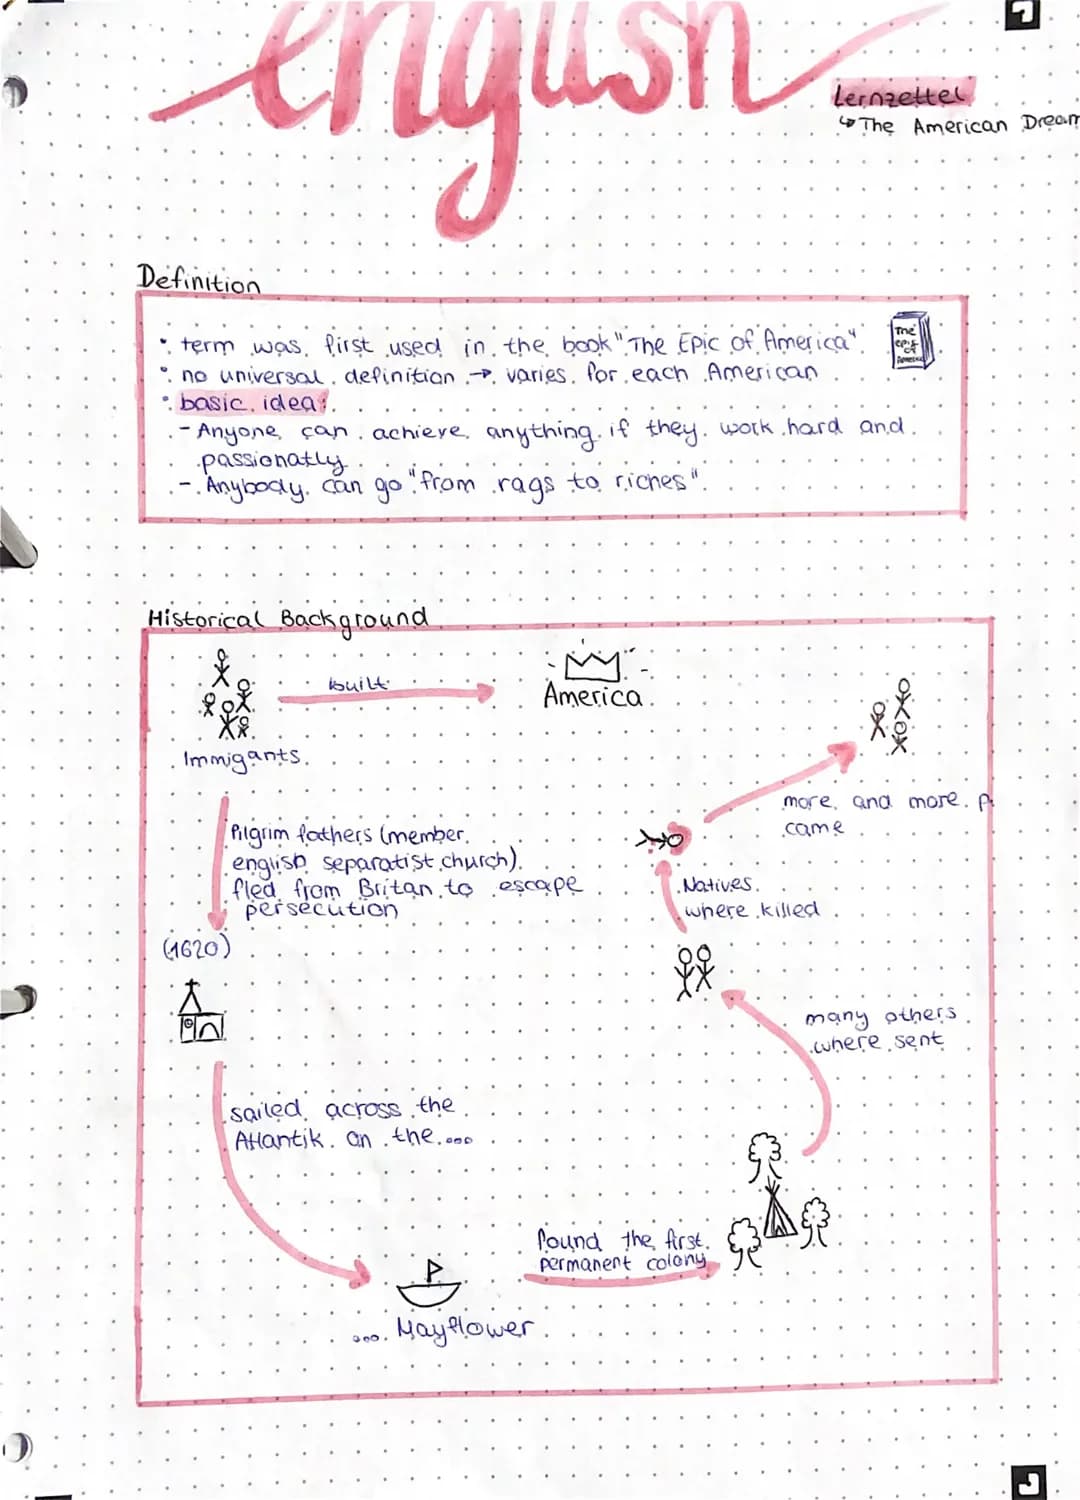 english
Lernzettel
↳ The American Dream
Definition
• term was first used in the book "The Epic of America"
The
epic
of
America
• no universal definition → varies for each American
• basic idea:
- Anyone can achieve anything if they work hard and
passionatly
- Anybody can go "from rags to riches"
Historical Background
built
America
Immigants
more and more p
came
Pilgrim fathers (member
english separatist church)
fled from Britan to escape
persecution
Natives
where killed
(1620)
many others
where sent
sailed across the
Atlantik on the ...
found the first
permanent colony
... Mayflower